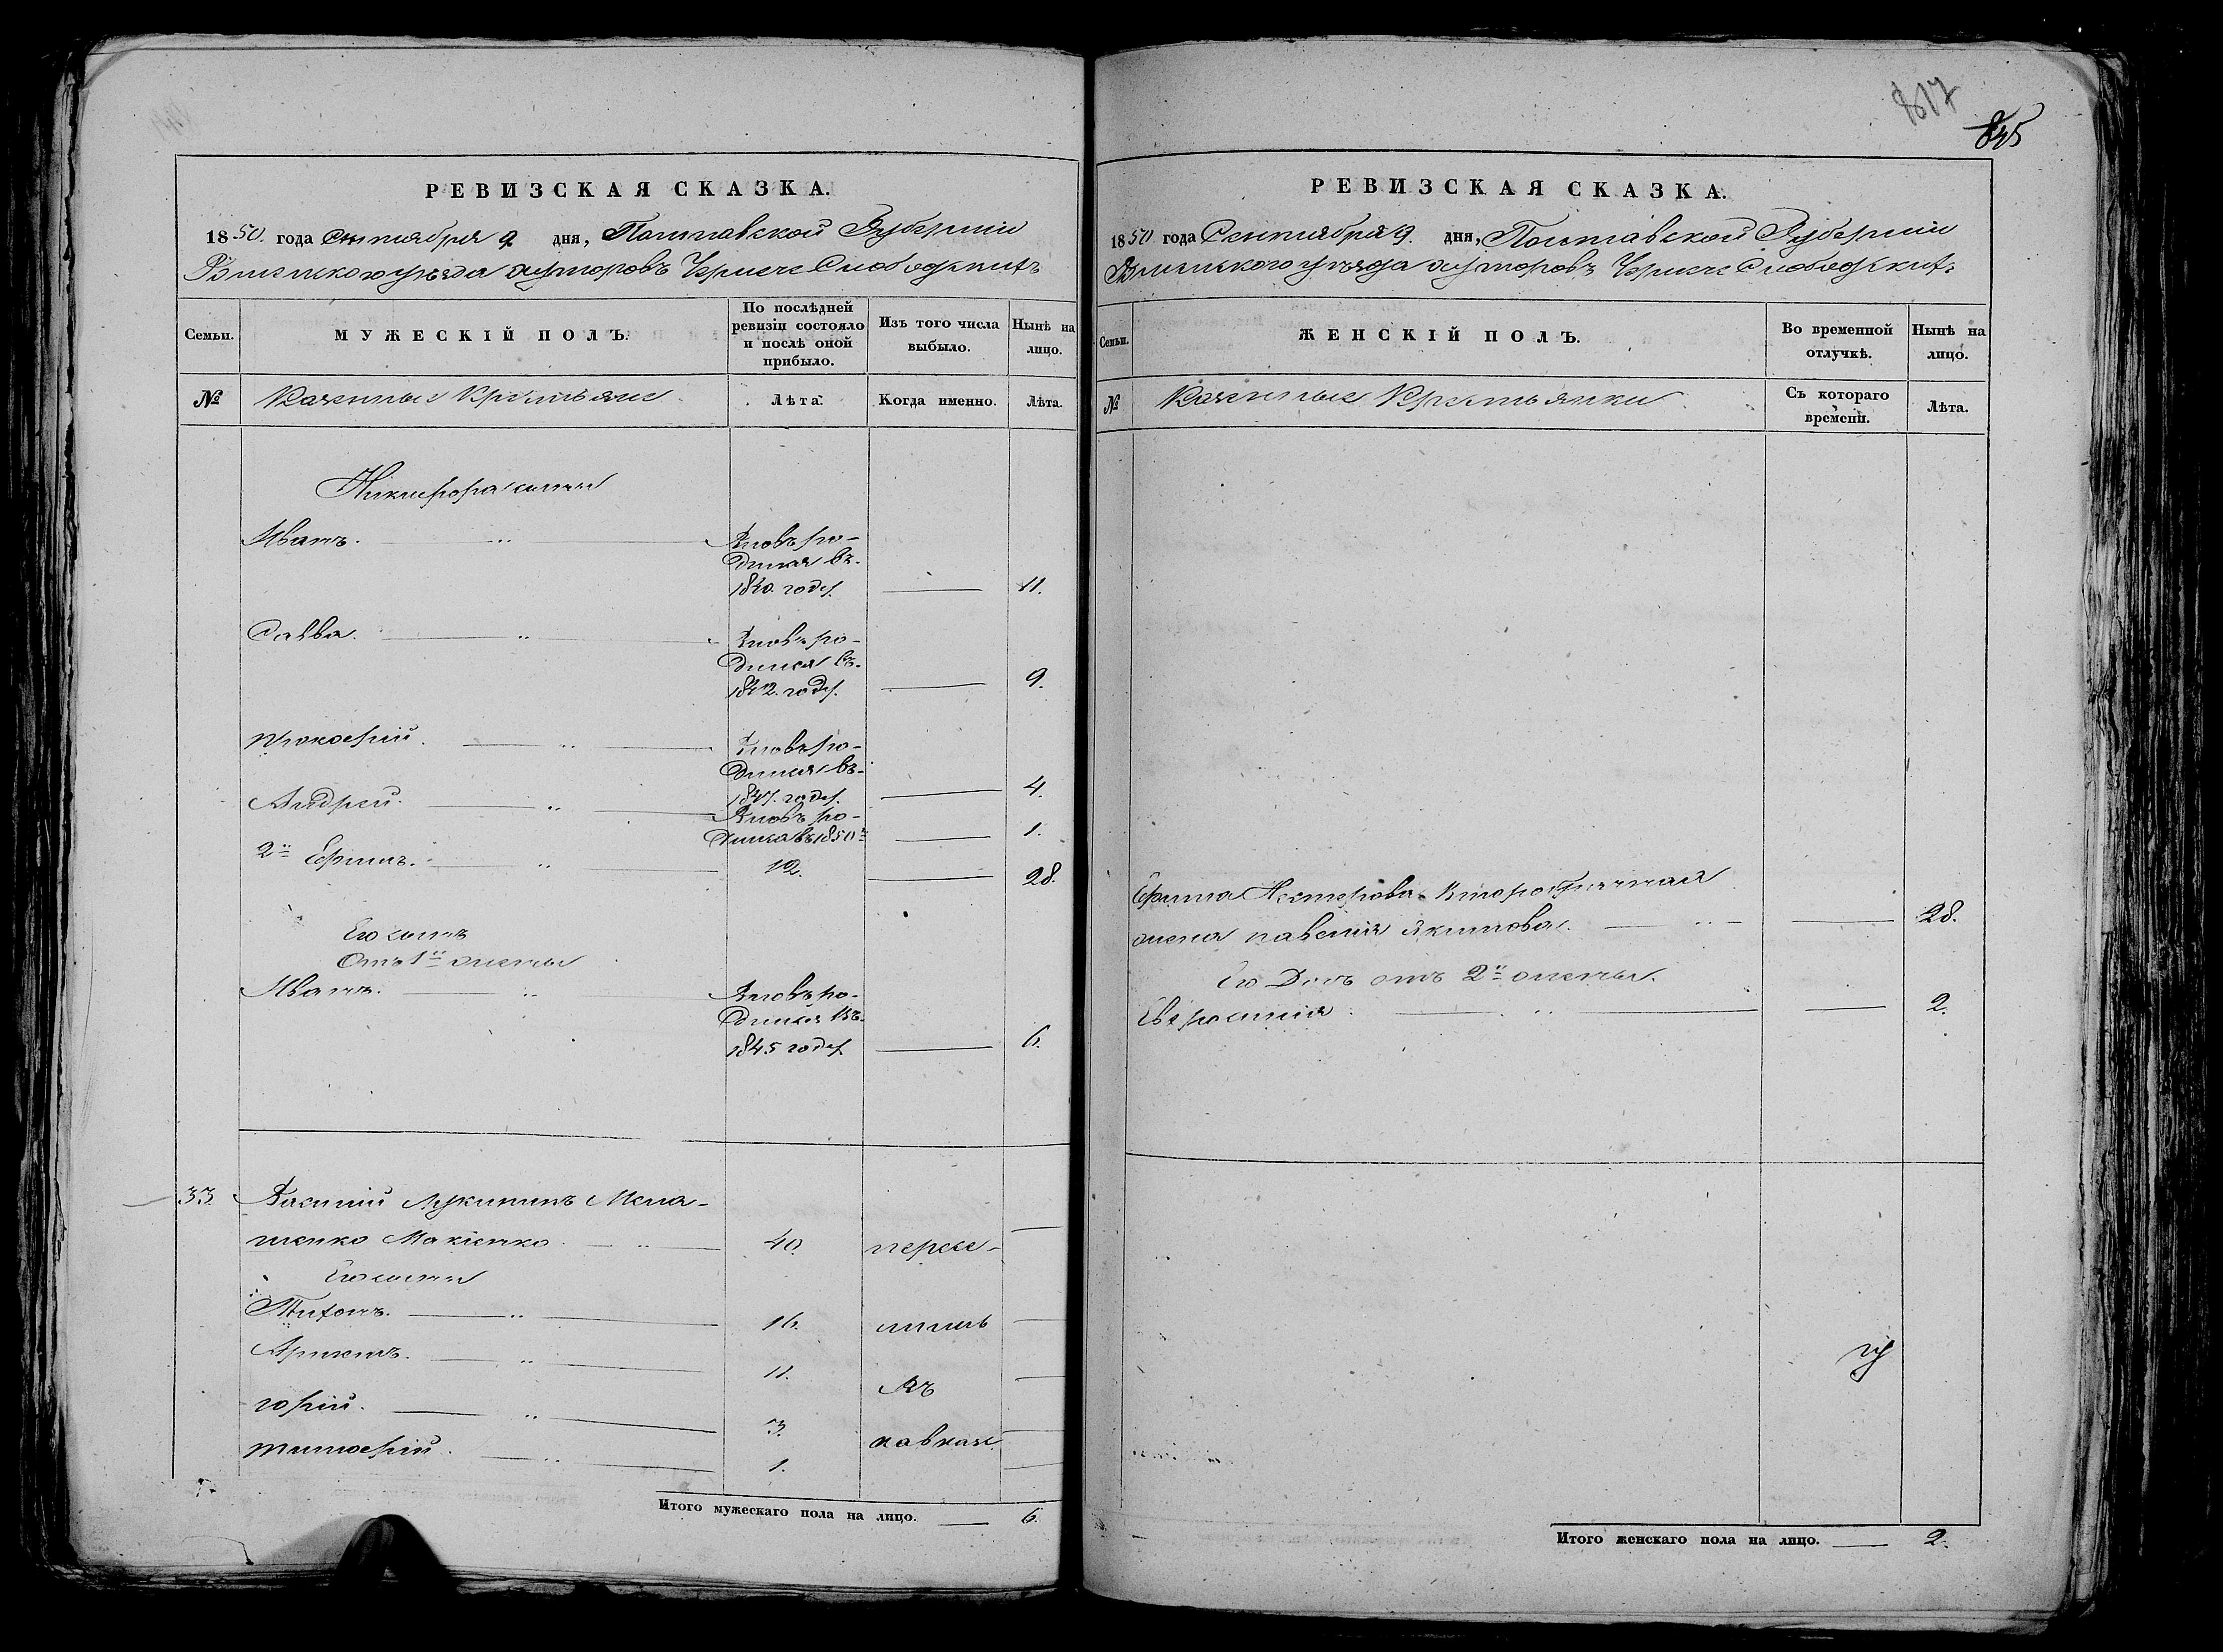 РЕВИЗСКАЯ СКАЗКА.
1850. года Сентября 9 дня, Полтавской Губерніи
уѣзда хуторовъ
Семьи.
МУЖЕСКІЙ ПОЛЪ.
По послѣдней ревизіи состояло и послѣ оной прибыло.
Изъ того числа выбыло.
Нынѣ на лицо.
№
Казенные Крестьяне
Лѣта.
Когда именно.
Лѣта.
Никифора сыны
Иванъ.
Вновь ро-
дился въ
1840. году.
11.
Савва.
Вновь ро-
дился въ
1842. году.
9.
Прокофій.
Вновь ро-
дился въ
1847. году.
4.
Андрей.
Вновь ро-
дился въ 1850
1.
2й Ефимъ.
12.
28.
Его сынъ
Отъ 1й жены
Иванъ.
Вновь ро-
дился въ
1845 году
6.
33. Василій Лукининъ
Макіенко
40.
пересе-
Его сыны
Тихонъ.
16.
лилсь
11.
Въ
3.
кавказ
Тимофій.
1.
Итого мужескаго пола на лицо.
6.
817
845
РЕВИЗСКАЯ СКАЗКА.
1850 года Сентября 9. дня, Полтавской Губерніи
уѣзда хуторовъ
Семьи.
ЖЕНСКІЙ ПОЛЪ.
Во временной отлучкѣ.
Нынѣ на лицо.
№
Казенные Крестьянки
Съ котораго времени.
Лѣта.
Ефима Нестерова Второбрачная
жена Якимова.
28.
Его Дочь отъ 2й жены.
Евфросинія
2.
Итого женскаго пола на лицо.
2.